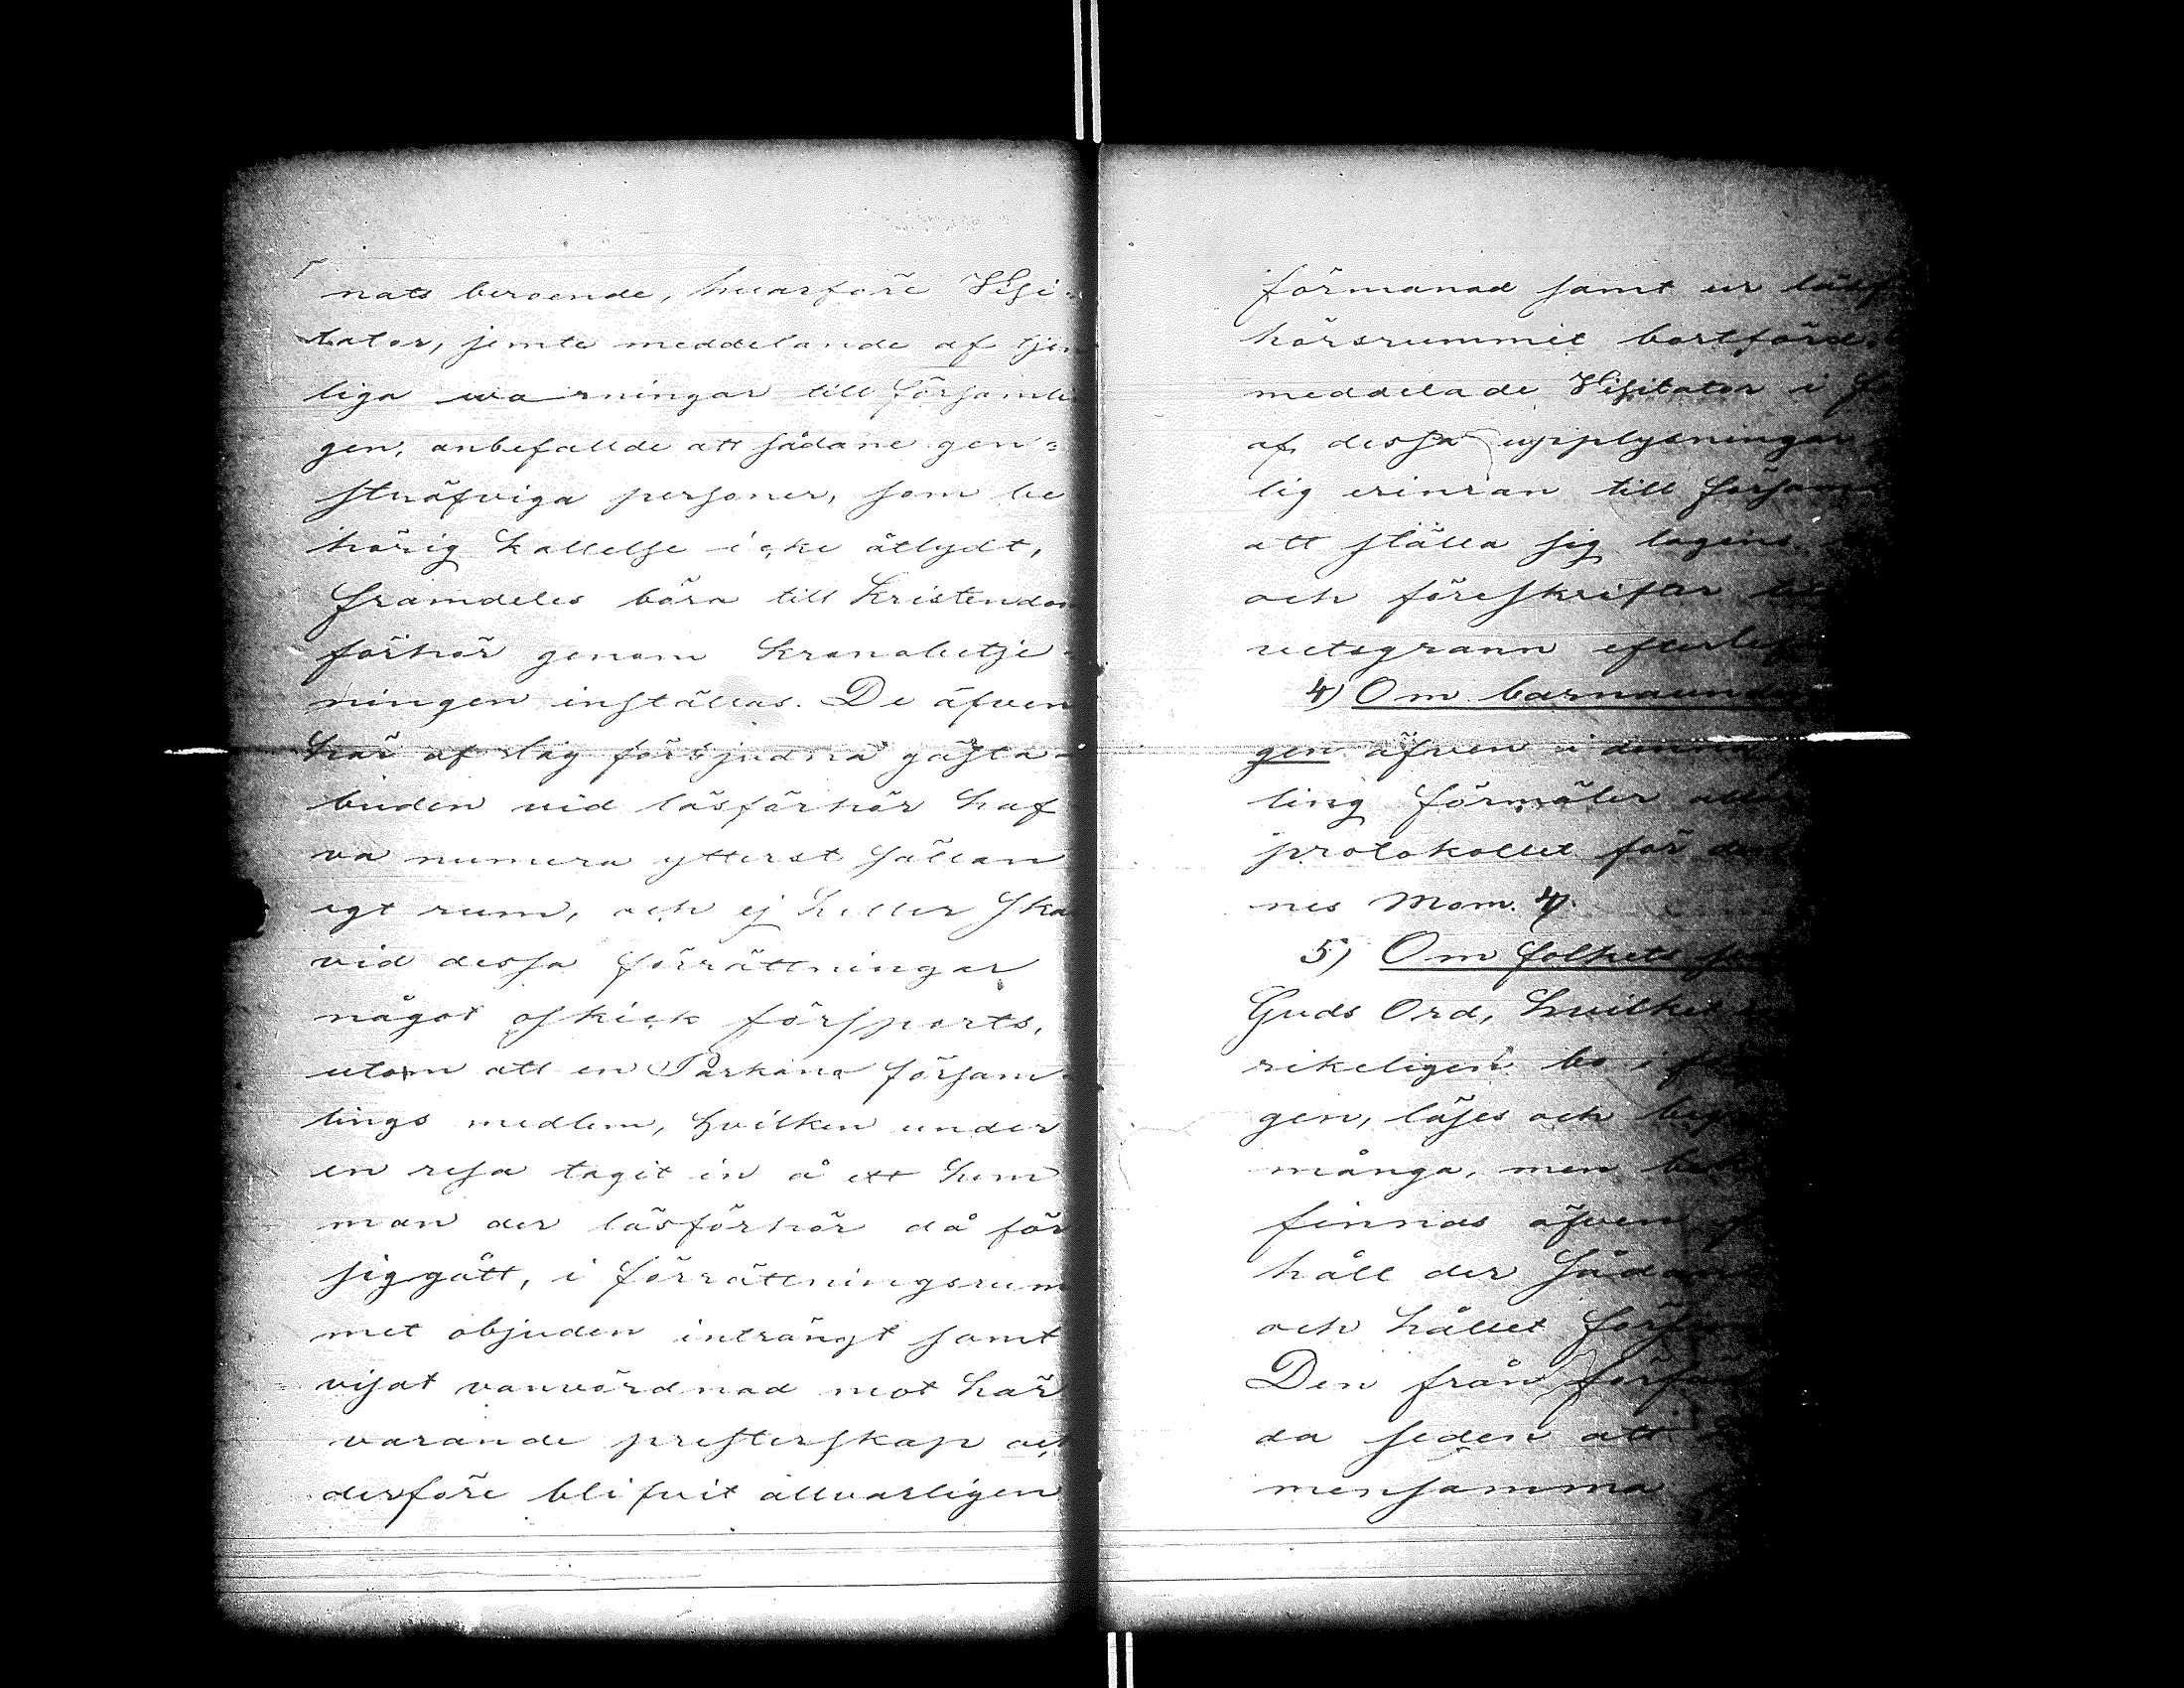 nats beroende, hvarföre Visi-
tator, jemte meddelande af tjen
liga warningar till Församli
gen, anbefallde att sådane gen=
sträfviga personer, som be
hörig kallelse icke åtlydt,
framdeles böra till Kristendom
förhör genom Kronobetje-
ningen inställas. De äfven
här af lag förbjudna gästa-
buden vid läsförhör haf
va numera ytterst sällan
egt rum, och ej heller ska
vid dessa förrättningar
något oskick försports,
utom att en Parkano försam-
lings medlem, hvilken under
en resa tagit in å ett hem
man der läsförhör då för
siggått, i förrättningsrum
met objuden inträngt samt
visat vanvördnad mot här
varande presterskap och
derföre blifvit allvarligen
förmanad samt ur läsf
hörsrummet bortförd.
meddelade Visitator i
af dessa upplysningar
lig erinran till Försam
att ställa sig lagens
och föreskrifter
vetsgrann efterlef
4) Om barnaunde
gen äfven i denna
ling förmäler
protokollet för den
nes Mom. 4.
5) Om folkets
Guds Ord, hvilket
rikeligen bo i
gen, läses och beg
många, men
finnas äfven
håll der sådan
och hållet förs
Den från förfäd
da seden att
mensamma